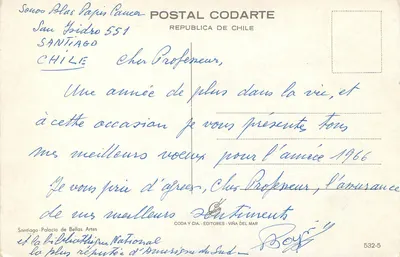 POSTAL CODARTE
REPUBLICA DE CHILE
San Isidro 551
SANTIAGO
CHILE
Cher Professeur,
Une année de plus dans la vie, et
à cette occasion je vous présentes tous
mes meilleurs voeux pour l'année 1966
Je vous prie d'agréer, Cher Professeur, l'assurance
de mes meilleurs sentiments
Santiago: Palacio de Bellas Artes
CODA Y CIA. EDITORES - VIÑA DEL MAR
532-5
et la bibliothèque National
la plus réputée d'Amérique du Sud